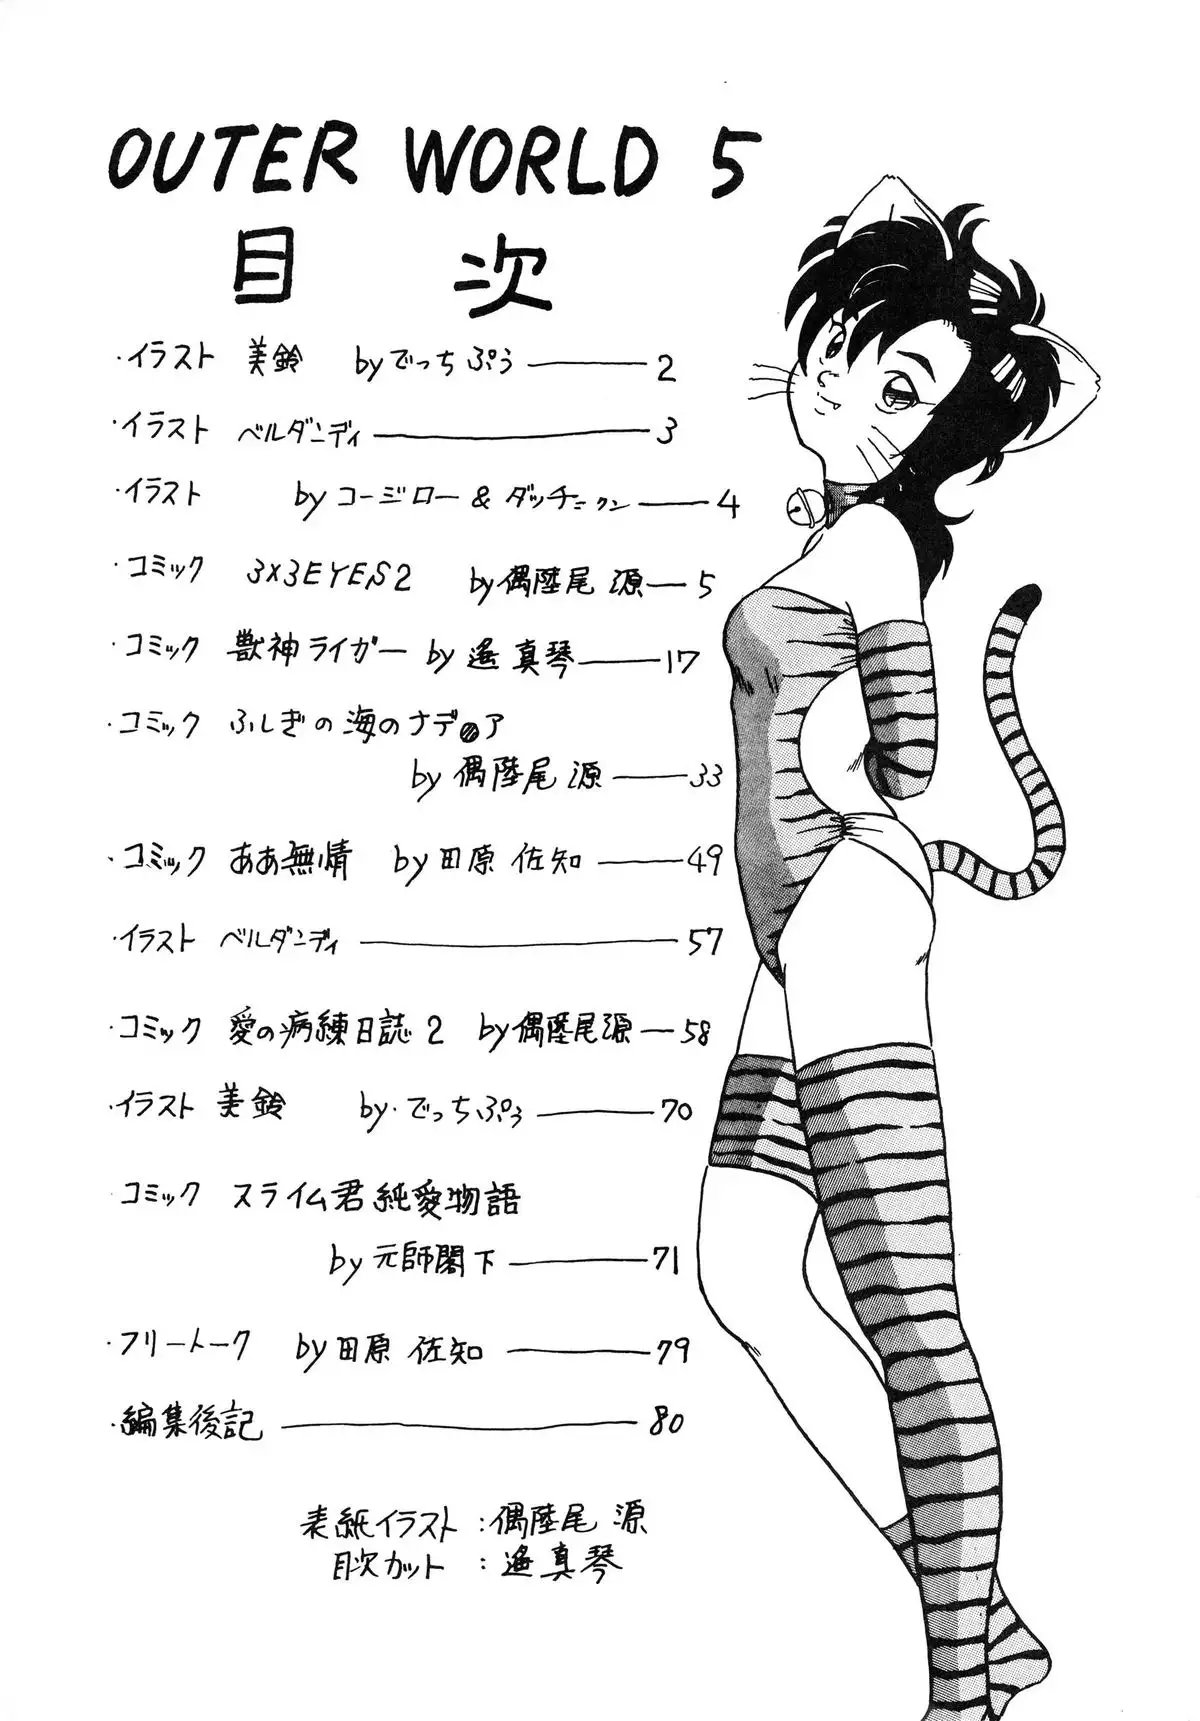 OUTER WORLD 5
目次
・イラスト 美鈴 byでっちぷう 2
・イラスト ベルダンディ 3
・イラスト by コージロー & ダッチークン 4
・コミック 3×3EYES2 by偶陸尾 源 5
・コミック 獣神ライガー by 遙 真琴 17
・コミック ふしぎの海のナデ〇ア
by 偶陸尾 源 33
・コミック ああ無情 by田原 佐知 49
・イラスト ベルダンディ 57
・コミック 愛の病練日誌2 by偶陸尾源 58
・イラスト 美鈴 by・でっちぷぅ 70
コミック スライム君純愛物語
by元師閣下 71
・フリートーク by田原 佐知 79
・編集後記 80
表紙イラスト:偶陸尾 源
目次カット:遙真琴